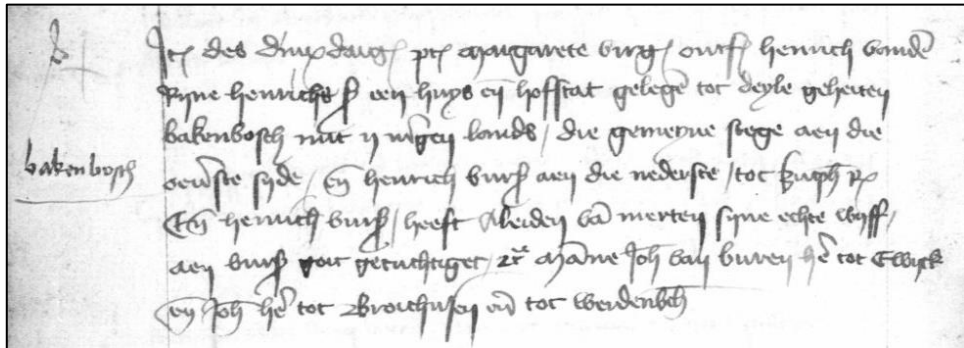 Itē des dinxdaigs pt Margarete virg ontf henrick vandē
Rijne henricks ss een huys eñ hofstat gelegē tot deyle geheiten
bakenbosch mit ij mergen lands / die gemeyne stege aen die
bakenbosch
overste syde / eñ henrick vurs aen die nederste / tot zutph r
Eñ henrick vurs / heeft Aleiden vā merten sijne echte wijff /
aen vurs getuchtiget / Manne Joh van buren hē tot Ewijck
eñ Joh hē tot Broichusen eñ tot werdenbch